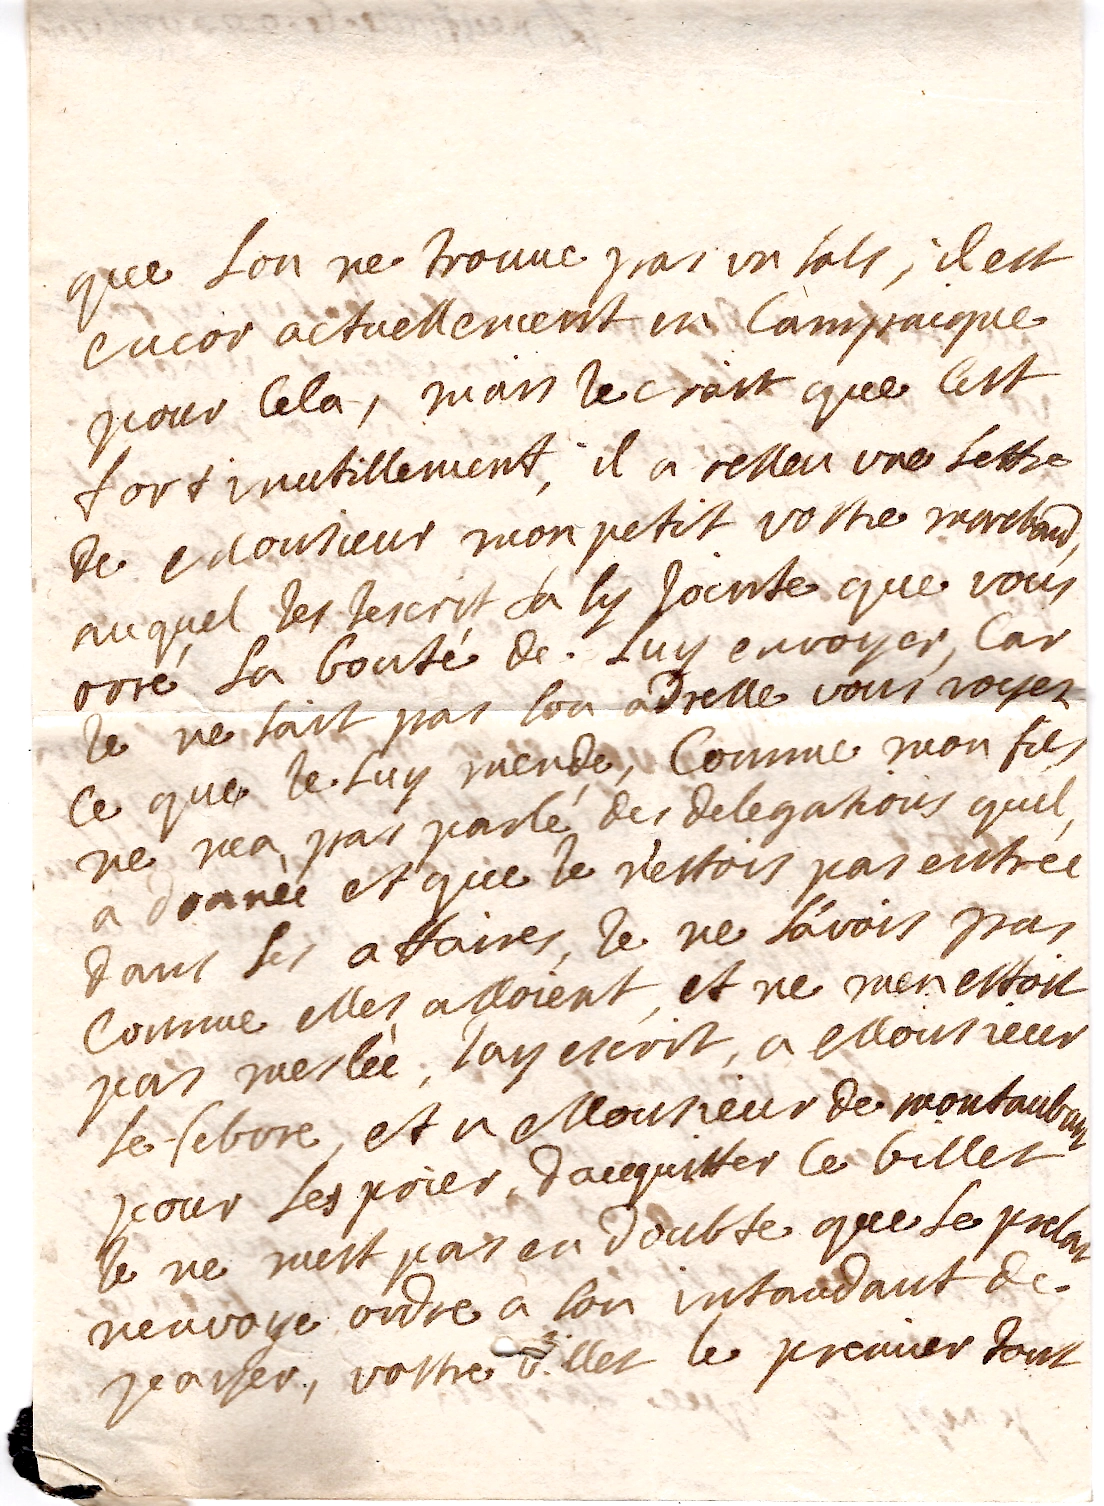 que Lon ne trouue pas un sols, il est
encor actuellement en Campaigne
pour Cela, mais Je croist que Cest
fort inutillement, il a resseu une Lettre
de Monsieur mon petit vostre marchand,
auquel Jescrit la sy Jointe que vous
oré La bonté de Luy envoyer, Car
Je ne sait pas son adresse vous voyez
Ce que Je Luy mende, Comme mon fils
ne mea pas parlé des delegations quil,
a donnée et que Je nestois pas entrée
dans Ses affaires, Je ne savois pas
Comme elles alloient, et ne men estoit
pas meslée, Jay escrit, a Monsieur
Le febvre, et a Monsieur de montauban
pour Les prier, dacquitter Ce billet
Je ne mest pas en doubte que Le prelat
nenvoye ordre a son intandant de
payer, vostre billet le premier tout